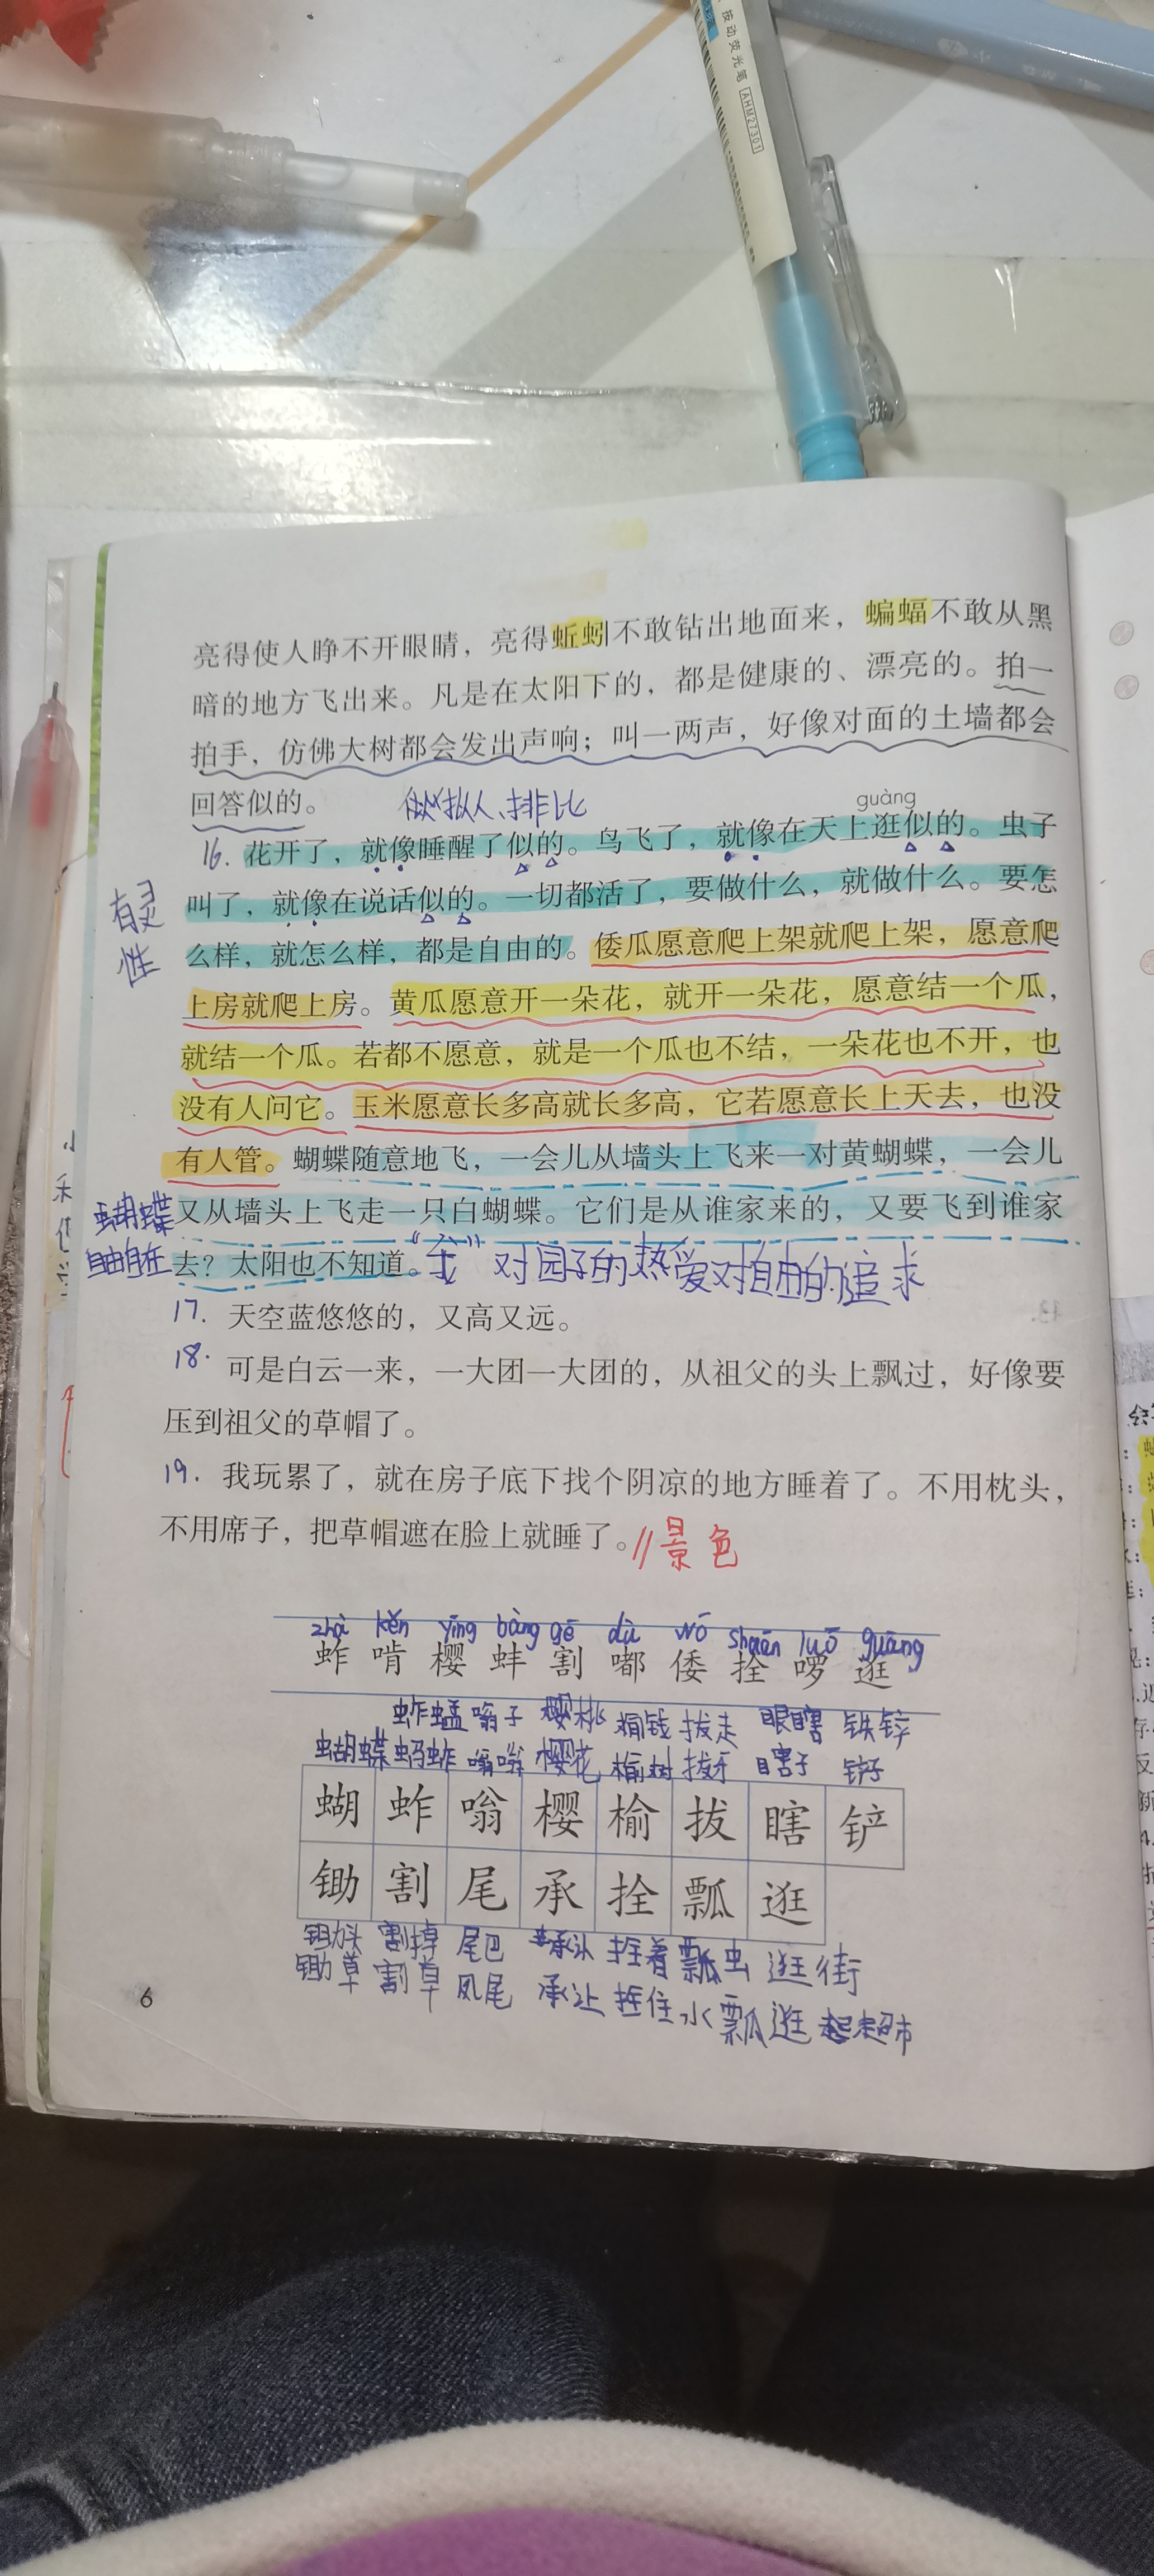 按动荧光笔 AHM27301
亮得使人睁不开眼睛，亮得蚯蚓不敢钻出地面来，蝙蝠不敢从黑
暗的地方飞出来。凡是在太阳下的，都是健康的、漂亮的。拍一
拍手，仿佛大树都会发出声响；叫一两声，好像对面的土墙都会
回答似的。
拟人、排比
guàng
16. 花开了，就像睡醒了似的。鸟飞了，就像在天上逛似的。虫子
有灵
性
叫了，就像在说话似的。一切都活了，要做什么，就做什么。要怎
么样，就怎么样，都是自由的。倭瓜愿意爬上架就爬上架，愿意爬
上房就爬上房。黄瓜愿意开一朵花，就开一朵花，愿意结一个瓜，
就结一个瓜。若都不愿意，就是一个瓜也不结，一朵花也不开，也
没有人问它。玉米愿意长多高就长多高，它若愿意长上天去，也没
有人管。蝴蝶随意地飞，一会儿从墙头上飞来一对黄蝴蝶，一会儿
蝴蝶
自由自在
又从墙头上飞走一只白蝴蝶。它们是从谁家来的，又要飞到谁家
去？太阳也不知道。“我”对园子的热爱对自由的追求
17. 天空蓝悠悠的，又高又远。
18. 可是白云一来，一大团一大团的，从祖父的头上飘过，好像要
压到祖父的草帽了。
19. 我玩累了，就在房子底下找个阴凉的地方睡着了。不用枕头，
不用席子，把草帽遮在脸上就睡了。//景色
zhà kěn yīng bàng gē dū wō shuān luō guàng
蚱 啃 樱 蚌 割 嘟 倭 拴 啰 逛
蚱蜢 嗡子 樱桃 榆钱 拔走 眼瞎 铁锌
蝴蝶 蚂蚱 嗡嗡 樱花 榆树 拔牙 瞎子 铲子
蝴 蚱 嗡 樱 榆 拔 瞎 铲
锄 割 尾 承 拴 瓢 逛
锄头 割掉 尾巴 承认 拴着 瓢虫 逛街
锄草 割草 凤尾 承让 拴住 水瓢 逛超市
6